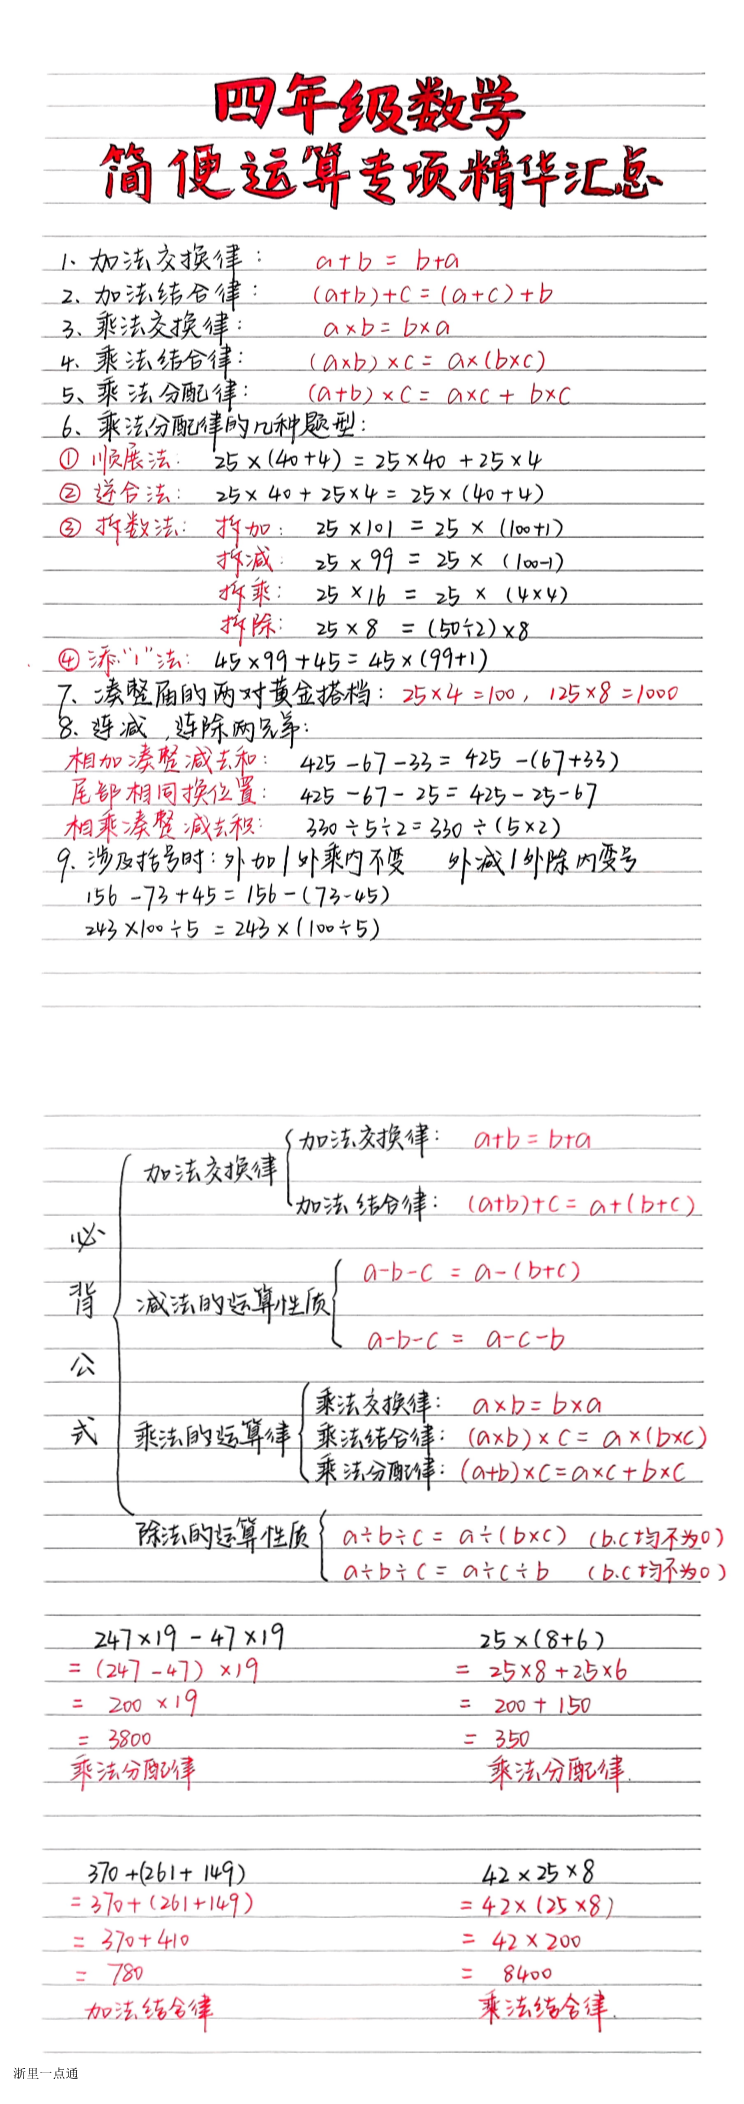 四年级数学
简便运算专项精华汇总
1、加法交换律： a+b = b+a
2、加法结合律： (a+b)+c=(a+c)+b
3、乘法交换律： a×b=b×a
4、乘法结合律： (a×b)×c= a×(b×c)
5、乘法分配律： (a+b)×c= a×c+ b×c
6、乘法分配律的几种题型：
① 顺展法： 25×(40+4)=25×40+25×4
② 逆合法： 25×40+25×4=25×(40+4)
③ 拆数法： 拆加： 25×101 = 25×(100+1)
拆减： 25×99 = 25×(100-1)
拆乘： 25×16 = 25×(4×4)
拆除： 25×8 =(50÷2)×8
④ 添"1"法： 45×99+45=45×(99+1)
7、凑整届的两对黄金搭档：25×4=100，125×8=1000
8、连减，连除两兄弟：
相加凑整减去和： 425-67-33= 425-(67+33)
尾部相同换位置： 425-67-25=425-25-67
相乘凑整减去积： 330÷5÷2=330÷(5×2)
9、涉及括号时：外加/外乘内不变 外减/外除内变号
156-73+45=156-(73-45)
243×100÷5 =243×(100÷5)
必背公式
加法交换律
加法交换律： a+b=b+a
加法结合律： (a+b)+c= a+(b+c)
减法的运算性质
a-b-c = a-(b+c)
a-b-c = a-c-b
乘法的运算律
乘法交换律： a×b=b×a
乘法结合律： (a×b)×c= a×(b×c)
乘法分配律： (a+b)×c=a×c+b×c
除法的运算性质
a÷b÷c = a÷(b×c) (b.c均不为0)
a÷b÷c = a÷c÷b (b.c均不为0)
247×19-47×19 25×(8+6)
=(247-47)×19 = 25×8+25×6
= 200×19 = 200+150
= 3800 = 350
乘法分配律 乘法分配律.
370+(261+149) 42×25×8
=370+(261+149) =42×(25×8)
= 370+410 = 42×200
= 780 = 8400
加法结合律 乘法结合律.
浙里一点通